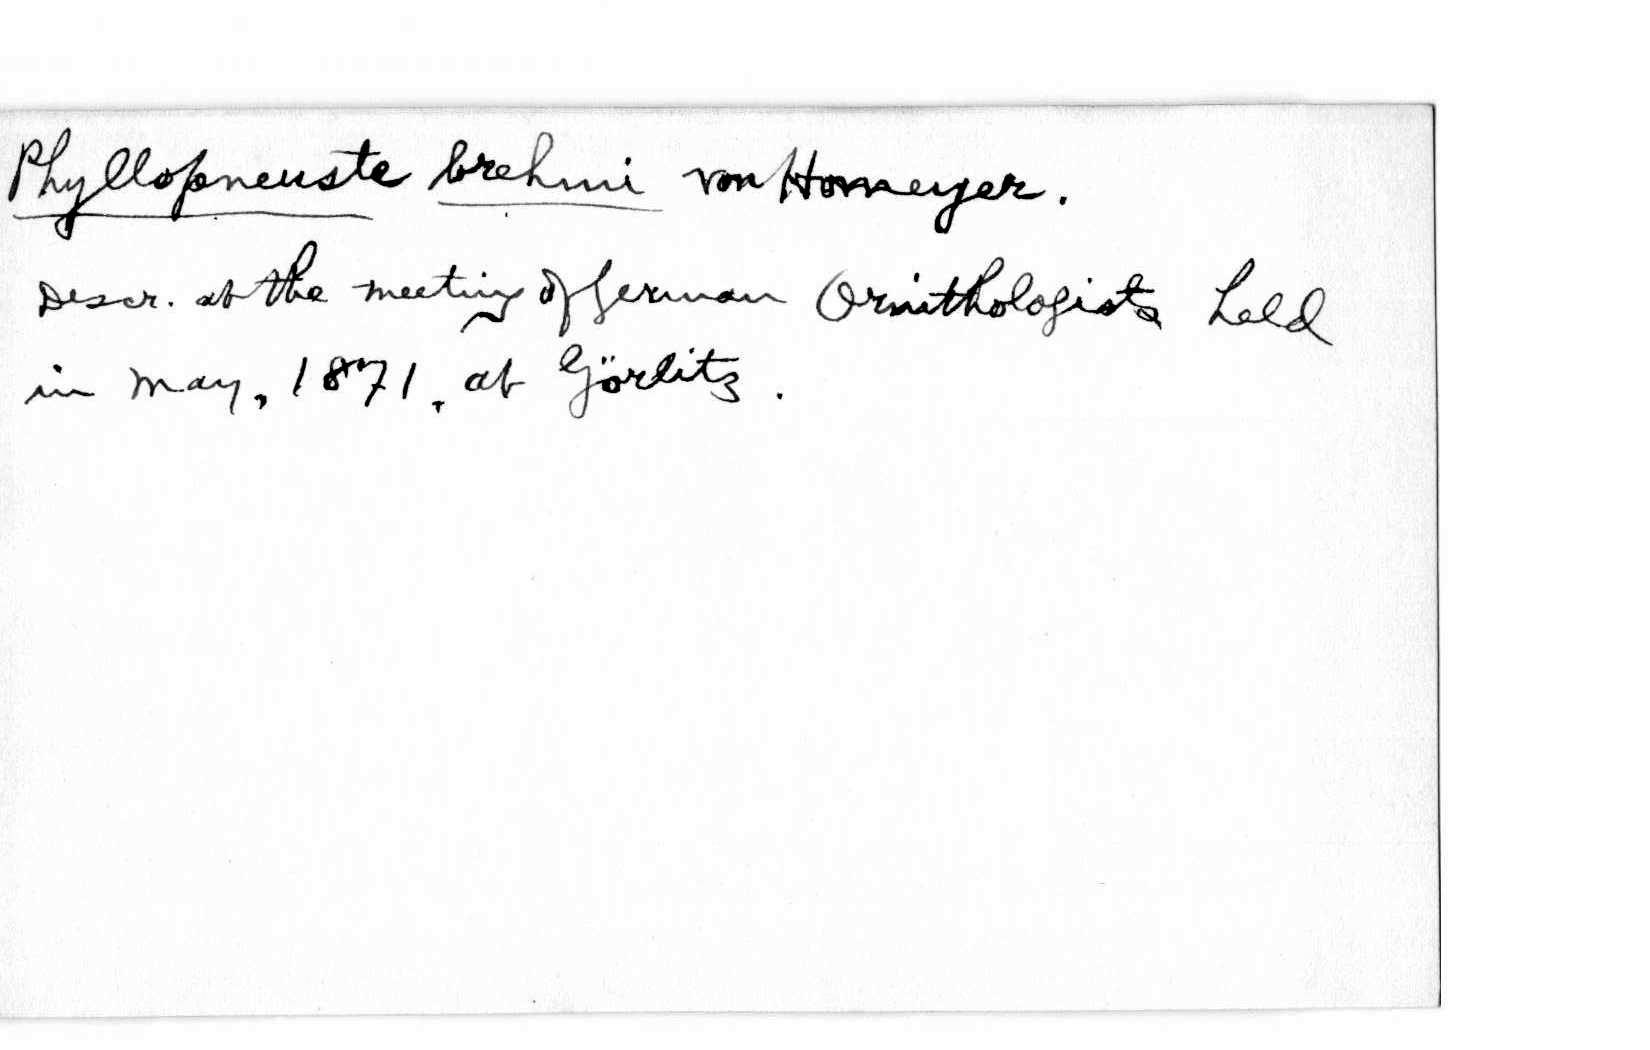 Phyllopneuste brehmi von Homeyer.
Descr. at the meeting of German Ornithologists held
in May, 1871, at Görlitz.